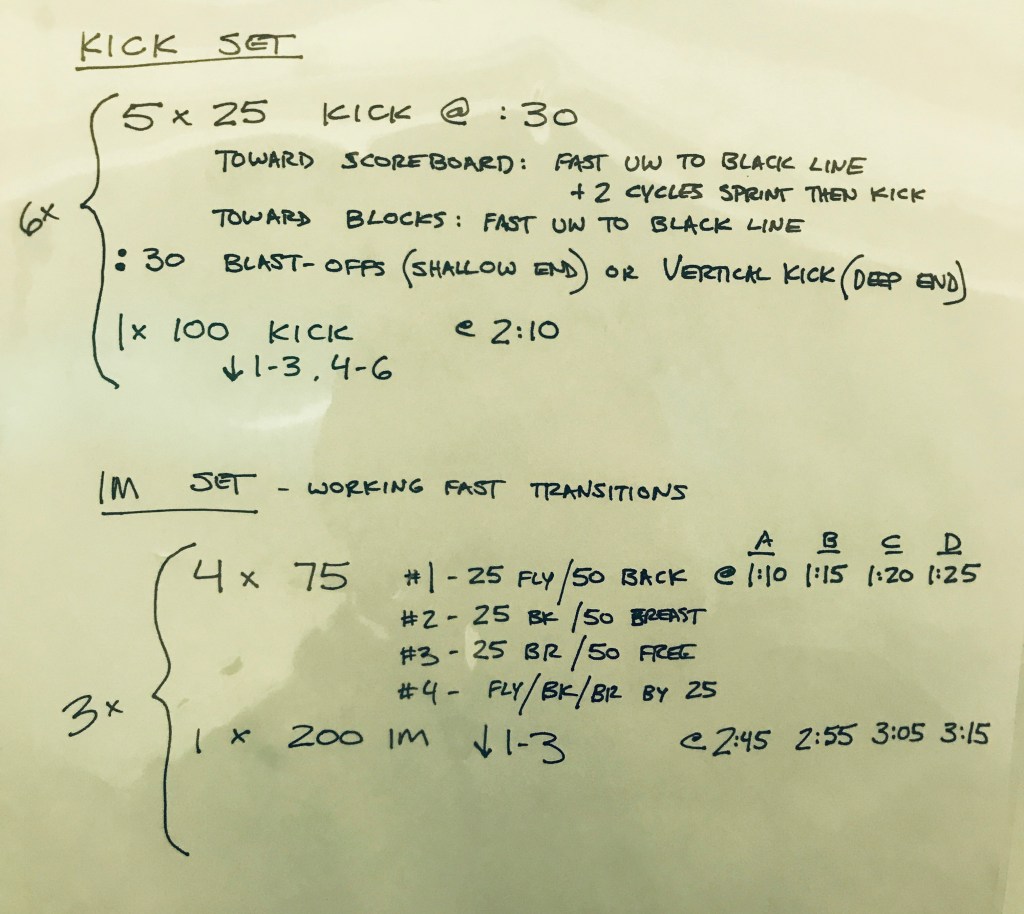 KICK SET
5 x 25 KICK @ :30
TOWARD SCOREBOARD: FAST UW TO BLACK LINE
+ 2 CYCLES SPRINT THEN KICK
6x
TOWARD BLOCKS: FAST UW TO BLACK LINE
:30 BLAST-OFFS (SHALLOW END) OR VERTICAL KICK (DEEP END)
1 x 100 KICK @ 2:10
↓ 1-3, 4-6
IM SET - WORKING FAST TRANSITIONS
A B C D
4 x 75 #1 - 25 FLY/50 BACK @ 1:10 1:15 1:20 1:25
#2 - 25 BK/50 BREAST
#3 - 25 BR/50 FREE
#4 - FLY/BK/BR BY 25
3x
1 x 200 IM ↓ 1-3 @ 2:45 2:55 3:05 3:15